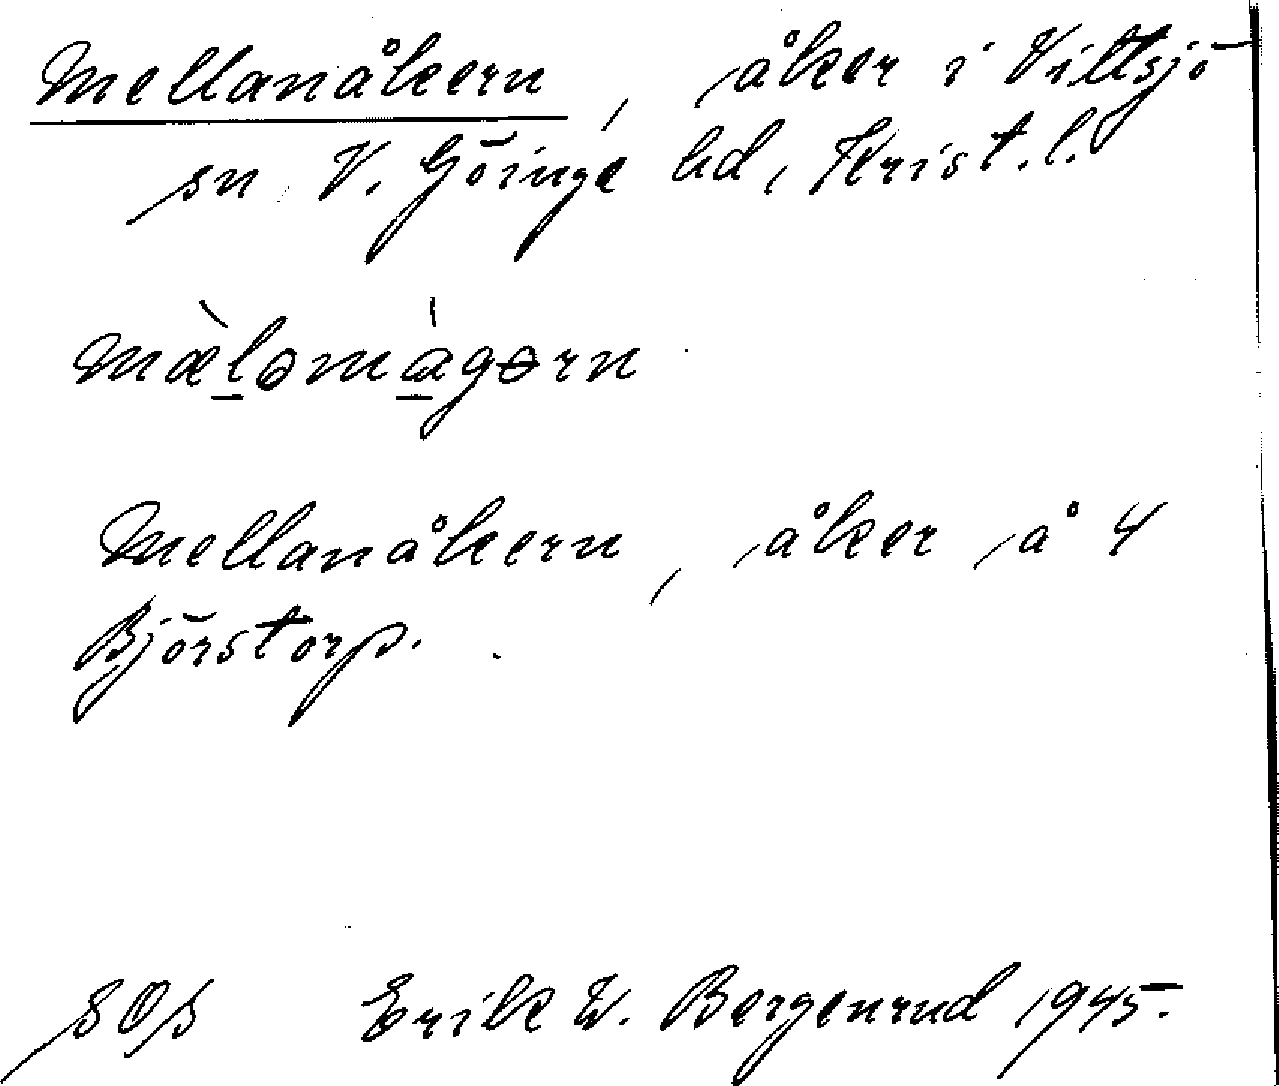 Mellanåkern, åker i Vittsjö
sn V. Göinge hd, Krist. l.
mæ̀ləmàgərn
Mellanåkern, åker å 4
Björstorp.
SOS Erik W. Bergenrud 1945.